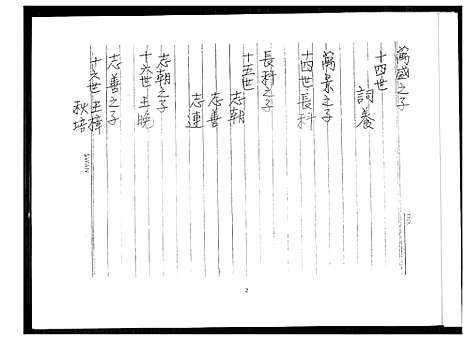 萬盛之子
十四世
詞養
萬泉之子
十四世長科
長科之子
十五世
志朝
志善
志連
志朝之子
十六世 王晚
志善之子
十六世 王樟
秋培
2